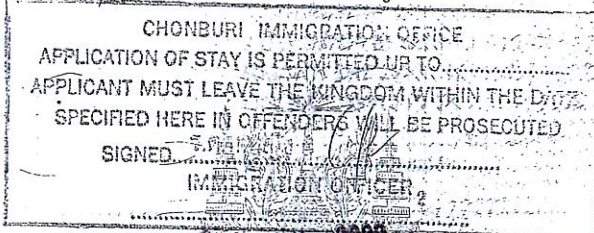 CHONBURI IMMIGRATION OFFICE
APPLICATION OF STAY IS PERMITTED UP TO....................
APPLICANT MUST LEAVE THE KINGDOM WITHIN THE DATE
SPECIFIED HERE IN OFFENDERS WILL BE PROSECUTED
SIGNED....................
IMMIGRATION OFFICER